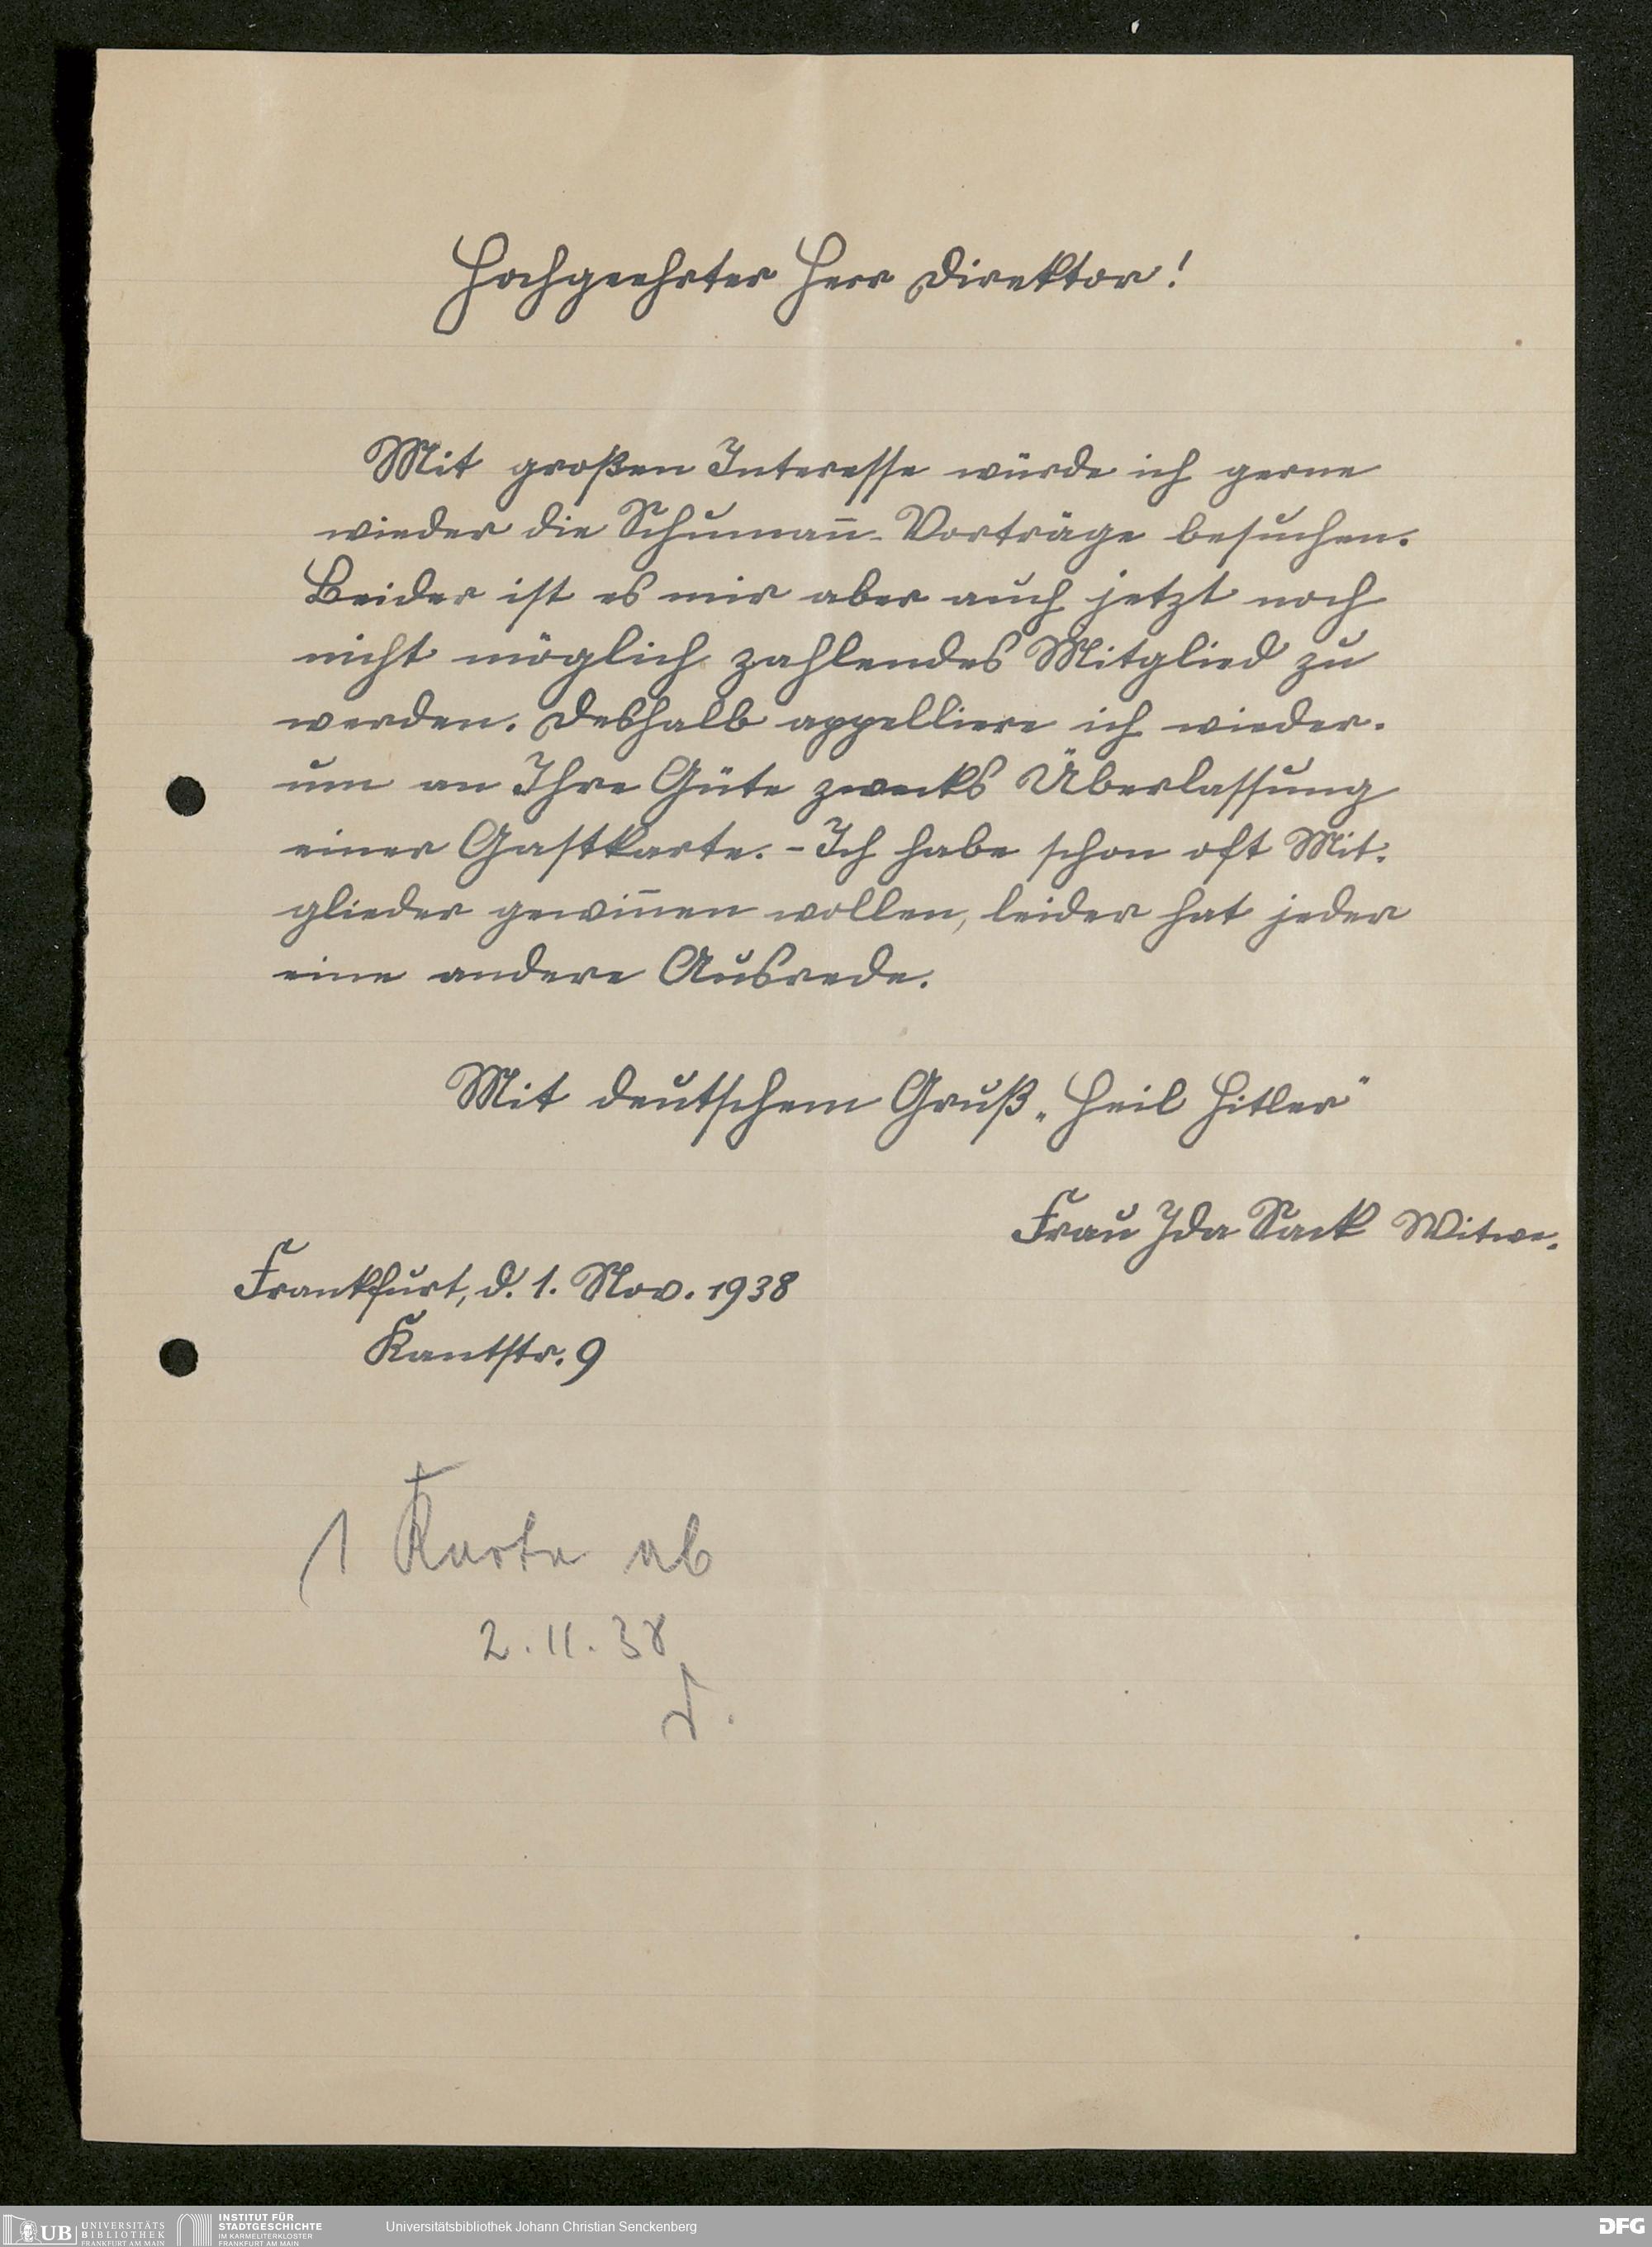 Hochgeehrter Herr Direktor!
Mit großen Interesse würde ich gerne
wieder die Schuman̄-Vorträge besuchen.
Leider ist es mir aber auch jetzt noch
nicht möglich zahlendes Mitglied zu
werden. Deshalb appelliere ich wieder-
um an Ihre Güte zwecks Überlassung
einer Gastkarte. - Ich habe schon oft Mit-
glieder gewin̄en wollen, leider hat jeder
eine andere Ausrede.
Mit deutschem Gruß „Heil Hitler"
Frau Ida Sack Witwe.
Frankfurt, d. 1. Nov. 1938
Kantstr. 9
1 Karte ab
2.11.38
UB UNIVERSITÄTS
BIBLIOTHEK
FRANKFURT AM MAIN
INSTITUT FÜR
STADTGESCHICHTE
IM KARMELITERKLOSTER
FRANKFURT AM MAIN
Universitätsbibliothek Johann Christian Senckenberg
DFG